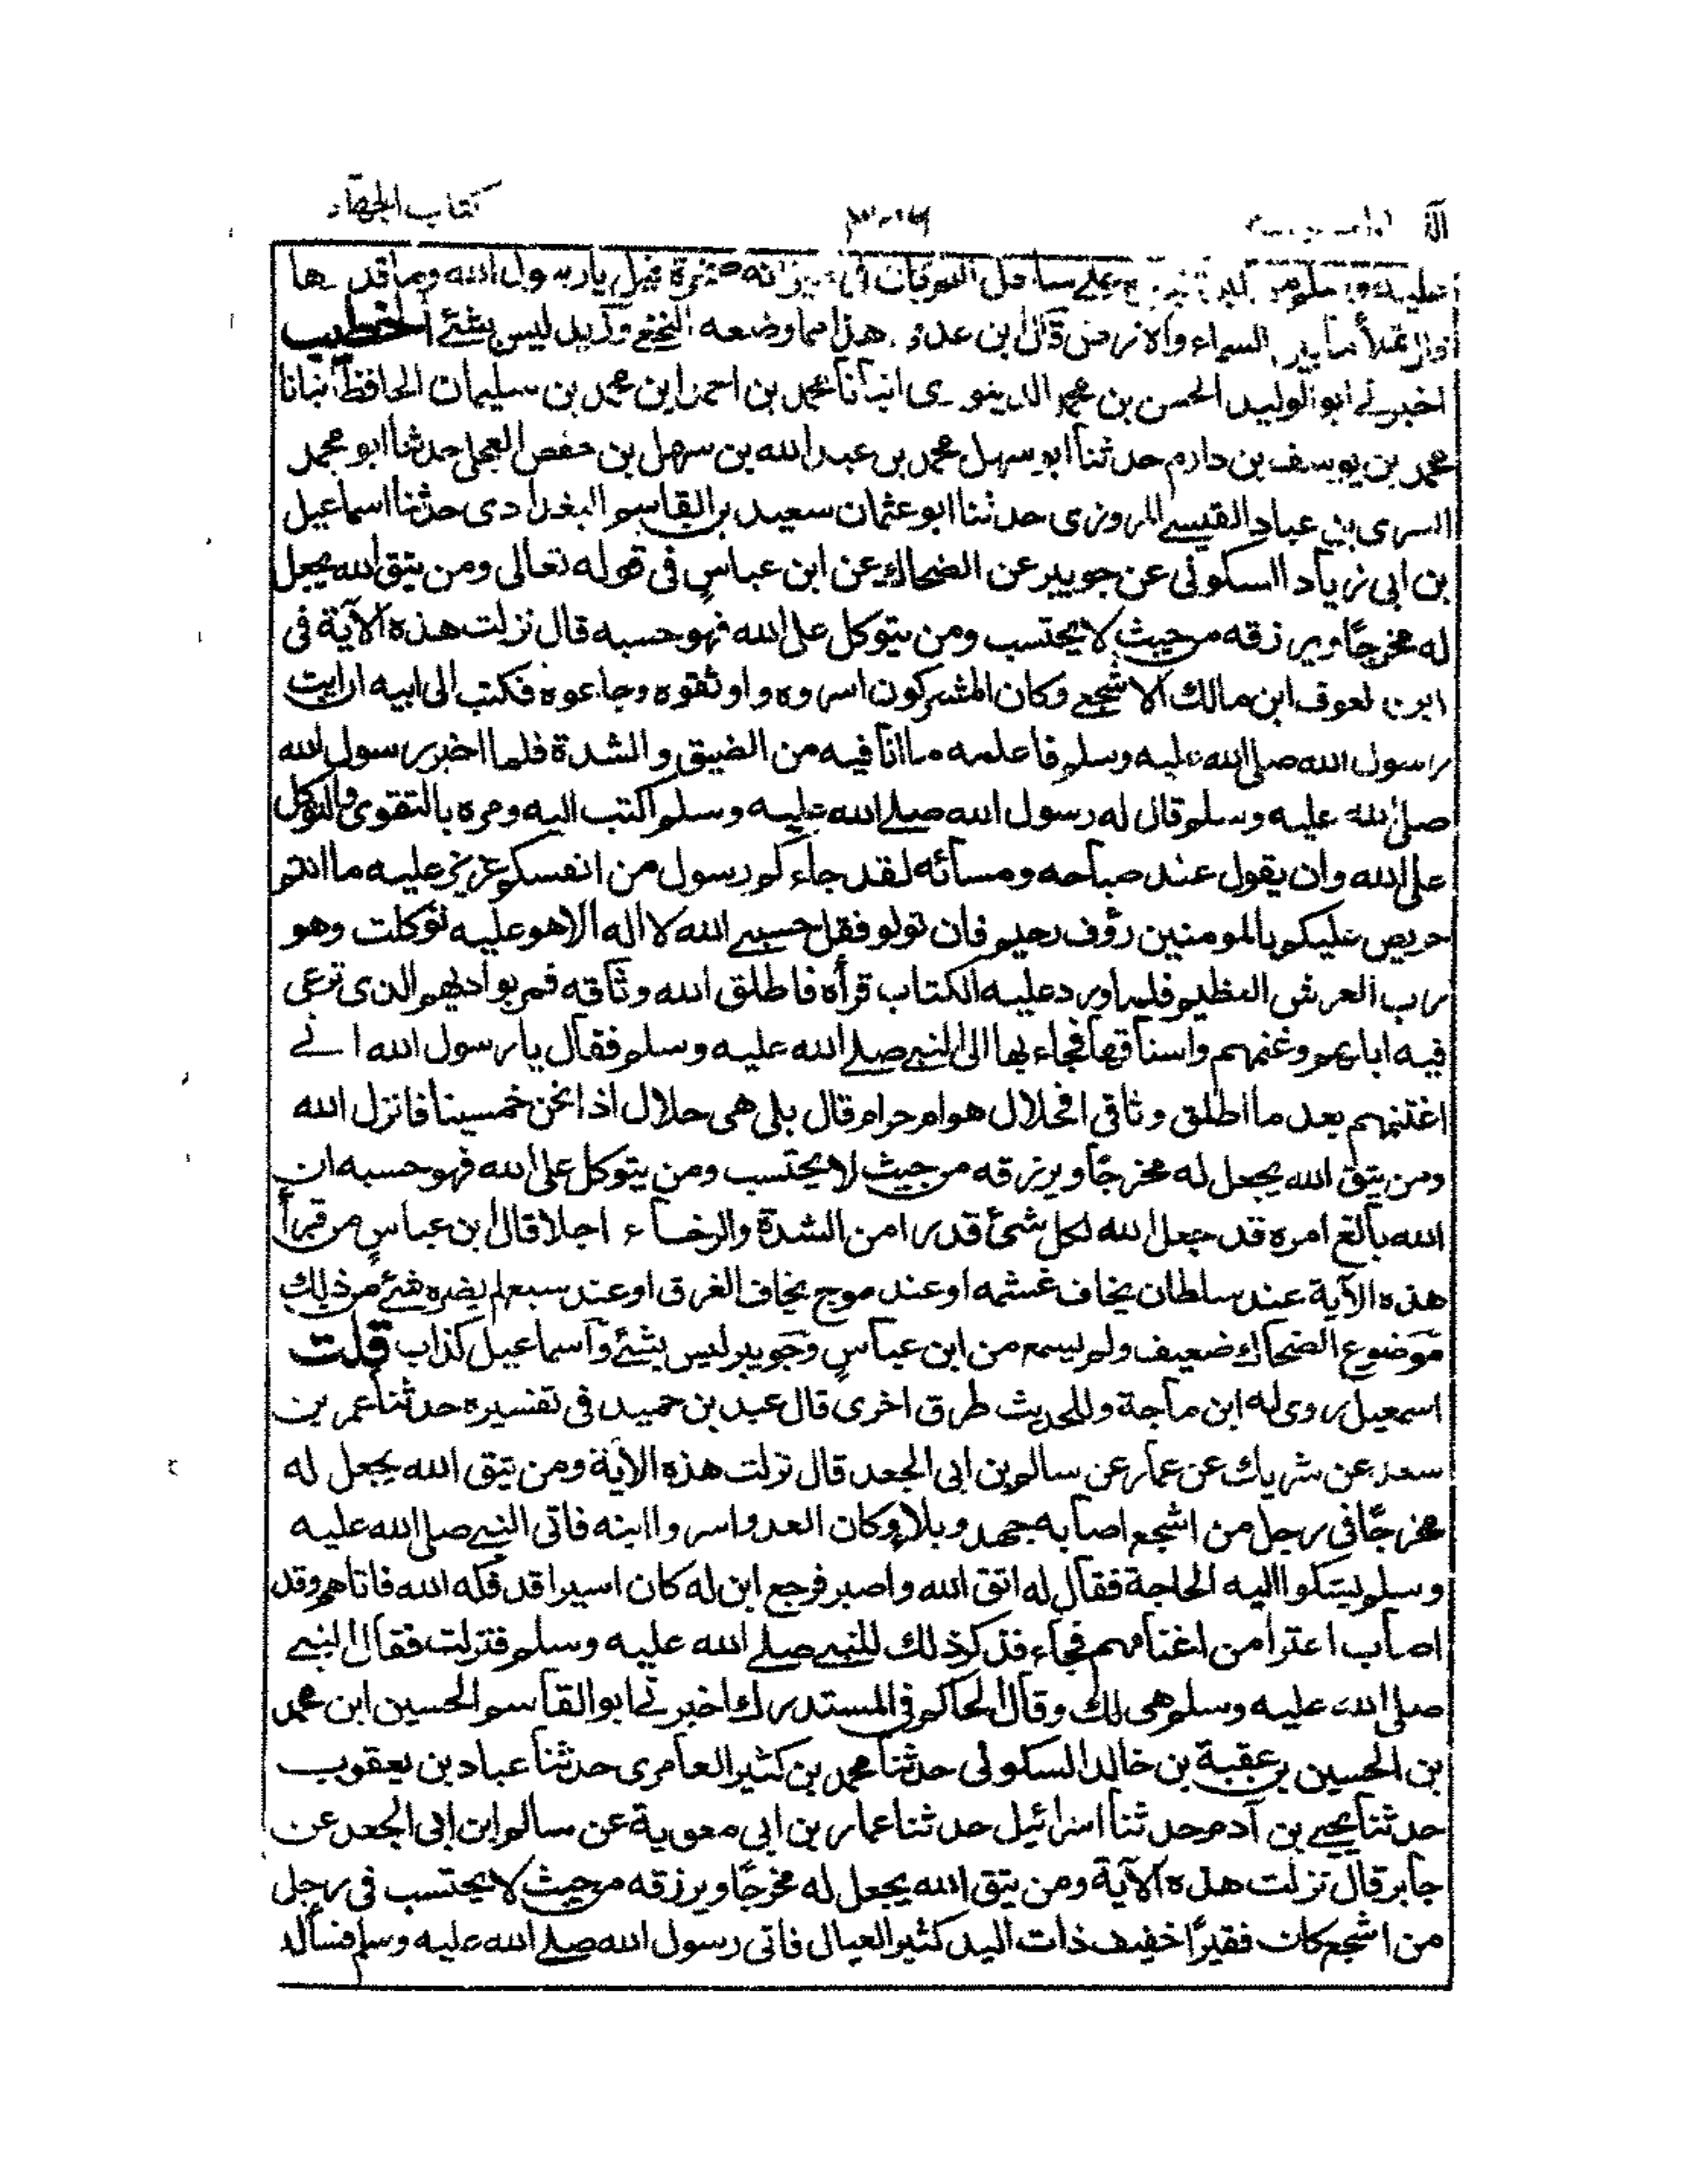 كتاب الجهاد
عليه وسلم من كبر تكبيرة على ساحل البحر كان في ميزانه صخرة قيل يا رسول الله وما قدرها
قال تملأ ما بين السماء والارض قال ابن عدى هذا مما وضعه النخعى وزيد ليس بشئ الخطيب
اخبرنى ابو الوليد الحسن بن محمد الدينورى انبأنا محمد بن احمد ابن محمد بن سليمان الحافظ انبانا
محمد بن يوسف بن دارم حدثنا ابو سهل محمد بن عبد الله بن سهل بن حفص العجلى حدثنا ابو محمد
السرى بن عباد القيسى المروزى حدثنا ابو عثمان سعيد بن القاسم البغدادى حدثنا اسماعيل
بن ابى زياد السكونى عن جويبر عن الضحاك عن ابن عباس فى قوله تعالى ومن يتق الله يجعل
له مخرجًا ويرزقه من حيث لا يحتسب ومن يتوكل على الله فهو حسبه قال نزلت هذه الآية فى
ابن لعوف ابن مالك الاشجعى وكان المشركون اسروه واوثقوه وجاعوه فكتب الى ابيه ان ايت
رسول الله صلى الله عليه وسلم فاعلمه ما انا فيه من الضيق والشدة فلما اخبر رسول الله
صلى الله عليه وسلم قال له رسول الله صلى الله عليه وسلم اكتب اليه ومره بالتقوى والتوكل
على الله وان يقول عند صباحه ومسائه لقد جاءكم رسول من انفسكم عزيز عليه ما انتم
حريص عليكم بالمومنين رؤف رحيم فان تولو فقل حسبى الله لا اله الا هو عليه توكلت وهو
رب العرش العظيم فلما ورد عليه الكتاب قرأه فاطلق الله وثاقه فمر بواديهم الذى ترعى
فيه ابلهم وغنمهم واستاقها فجاء بها الى النبى صلى الله عليه وسلم فقال يا رسول الله انى
اغتنمتهم بعد ما اطلق وثاقى افحلال هو ام حرام قال بلى هى حلال اذا نحن خمسينا فانزل الله
ومن يتق الله يجعل له مخرجًا ويرزقه من حيث لا يحتسب ومن يتوكل على الله فهو حسبه ان
الله بالغ امره قد جعل الله لكل شئ قدرا من الشدة والرخاء اجلا قال ابن عباس من قرأ
هذه الآية عند سلطان يخاف غشمه او عند موج يخاف الغرق او عند سبع لم يضره شئ من ذلك
موضوع الضحاك ضعيف ولم يسمع من ابن عباس وجويبر ليس بشئ واسماعيل كذاب قلت
اسمعيل روى له ابن ماجة وللحديث طرق اخرى قال عبد بن حميد فى تفسيره حدثنا عمر بن
سعد عن شريك عن عمار عن سالم بن ابى الجعد قال نزلت هذه الآية ومن يتق الله يجعل له
مخرجًا فى رجل من اشجع اصابه جهد وبلاء وكان العدو اسروا ابنه فاتى النبى صلى الله عليه
وسلم يشكوا اليه الحاجة فقال له اتق الله واصبر فرجع ابن له كان اسيرا قد فكه الله فاتاهم وقد
اصاب اعنزا من اغنامهم فجاء فذكر ذلك للنبى صلى الله عليه وسلم فنزلت فقال النبى
صلى الله عليه وسلم هى لك وقال الحاكم فى المستدرك اخبرنى ابو القاسم الحسين ابن محمد
بن الحسين بن عقبة بن خالد السكونى حدثنا محمد بن كثير العامرى حدثنا عباد بن يعقوب
حدثنا يحيى بن آدم حدثنا اسرائيل حدثنا عمار بن ابى معوية عن سالم ابن ابى الجعد عن
جابر قال نزلت هذه الآية ومن يتق الله يجعل له مخرجًا ويرزقه من حيث لا يحتسب فى رجل
من اشجع كان فقيرًا خفيف ذات اليد كثير العيال فاتى رسول الله صلى الله عليه وسلم فسأله